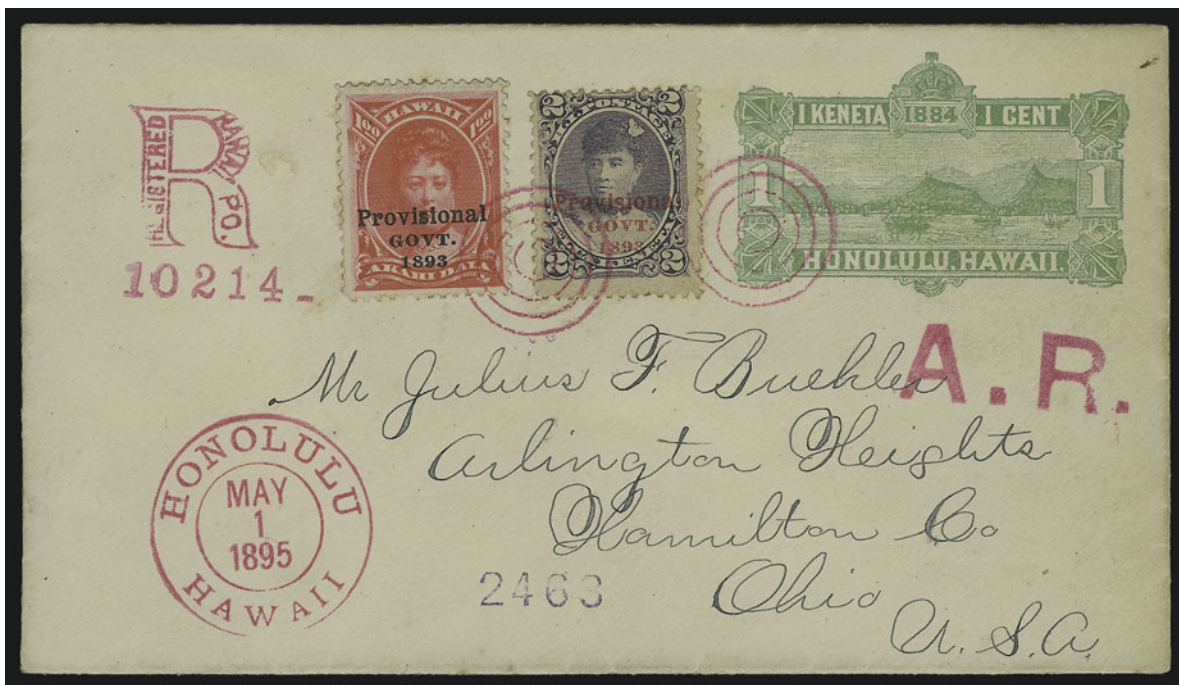 REGISTERED
R
HAWAII P.O.
10214
HAWAII
1.00 1.00
Provisional
GOVT.
1893
AKAHI DALA
2 2
Provisional
GOVT.
1893
2 2
1 KENETA 1884 1 CENT
1 1
HONOLULU, HAWAII.
A.R.
Mr Julius F. Buehler
Arlington Heights
Hamilton Co
Ohio
U.S.A.
HONOLULU
MAY
1
1895
HAWAII
2463